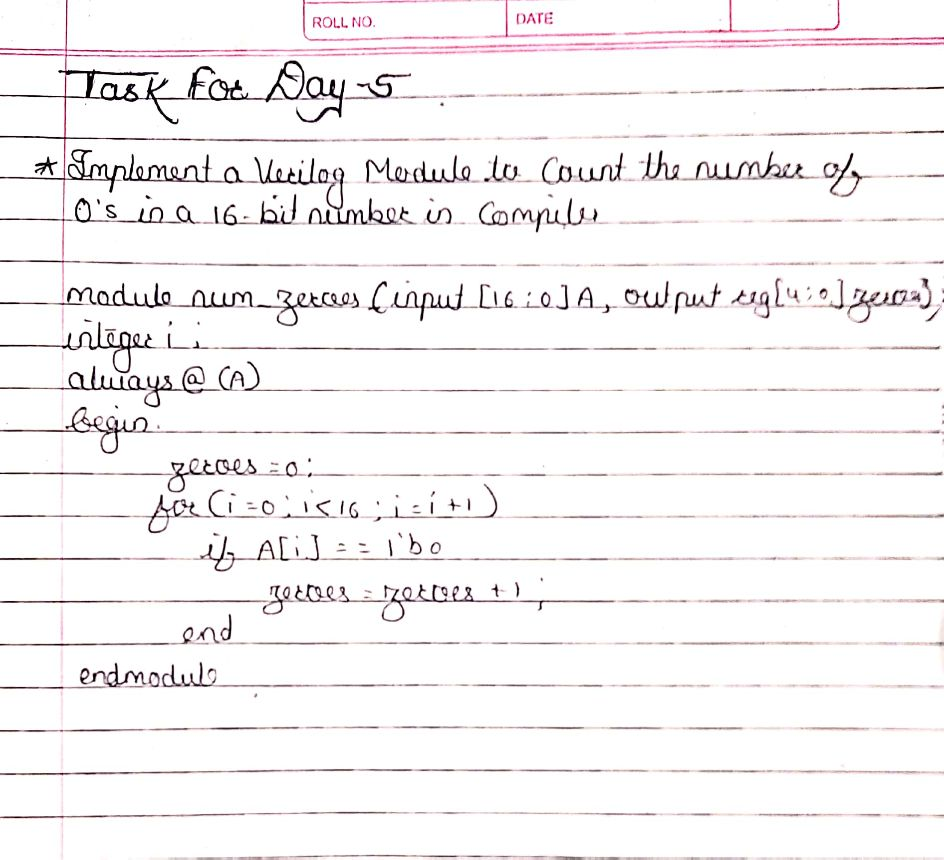 ROLL NO. DATE
Task For Day-5
* Implement a Verilog Module to Count the number of
0's in a 16-bit number in Compiler
module num_zeroes (input [16:0] A, output reg[4:0] zeroes);
integer i;
always @ (A)
begin.
zeroes = 0;
for (i=0; i<16; i=i+1)
if A[i] == 1'b0
zeroes = zeroes +1;
end
endmodule